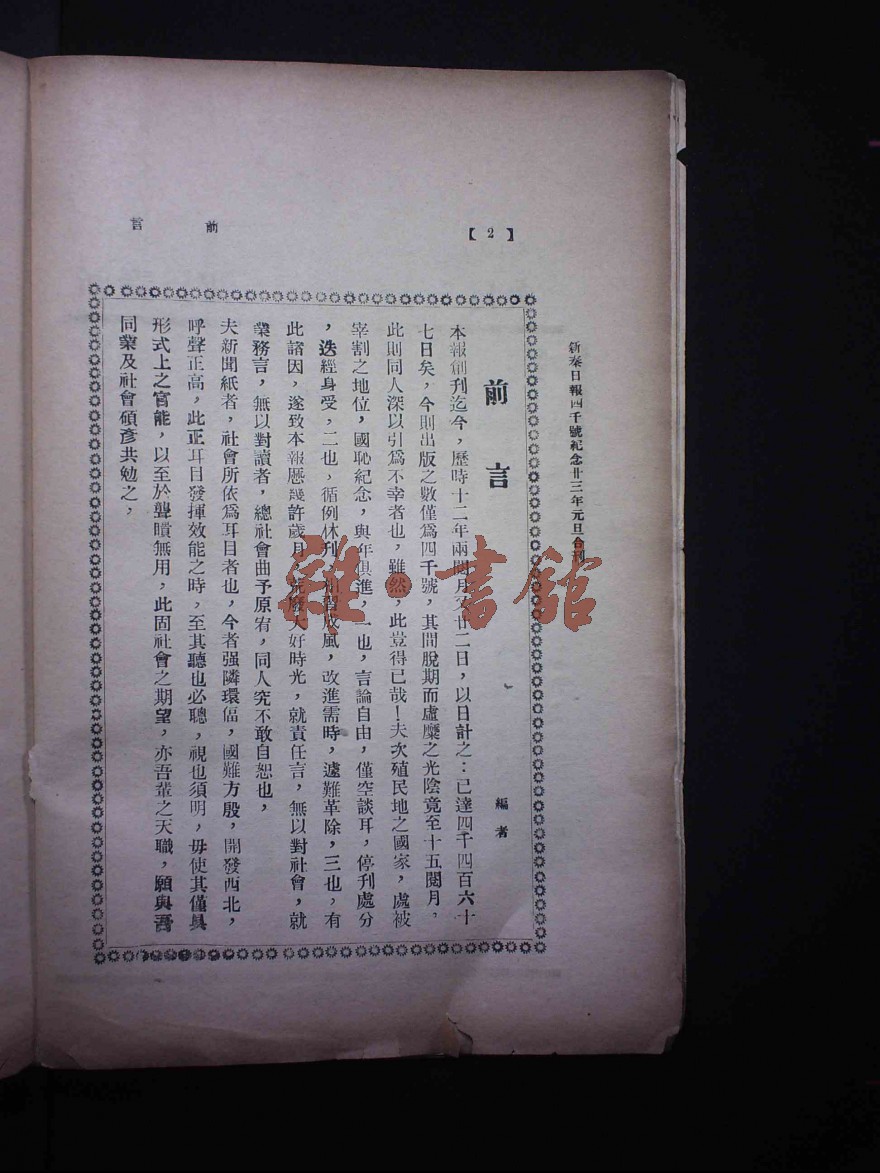 新秦日報四千號紀念廿三年元旦合刊
【2】
前言
前言
編者
本報創刊迄今，歷時十二年兩閱月又廿二日，以日計之：已達四千四百六十
七日矣，今則出版之數僅爲四千號，其間脫期而虛糜之光陰竟至十五閱月，
此則同人深以引爲不幸者也，雖然，此豈得已哉！夫次殖民地之國家，處被
宰割之地位，國恥紀念，與年俱進，一也，言論自由，僅空談耳，停刊處分
，迭經身受，二也，循例休刊，相習成風，改進需時，遽難革除，三也，有
此諸因，遂致本報歷幾許歲月，荒廢大好時光，就責任言，無以對社會，就
業務言，無以對讀者，總社會曲予原宥，同人究不敢自恕也，
夫新聞紙者，社會所依爲耳目者也，今者强隣環偪，國難方殷，開發西北，
呼聲正高，此正耳目發揮效能之時，至其聽也必聰，視也須明，毋使其僅具
形式上之官能，以至於聾瞶無用，此固社會之期望，亦吾輩之天職，願與吾
同業及社會碩彥共勉之，
雜·書館